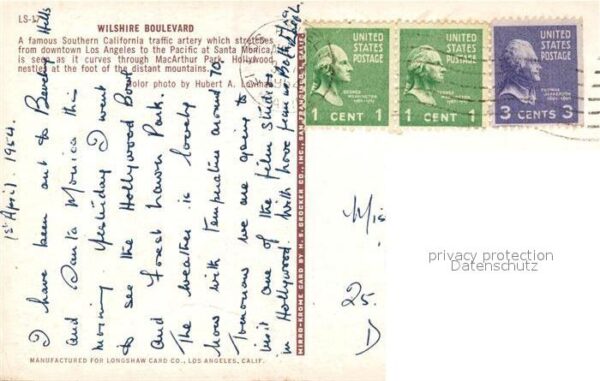 LS-17
WILSHIRE BOULEVARD
A famous Southern California traffic artery which stretches
from downtown Los Angeles to the Pacific at Santa Monica,
is seen as it curves through MacArthur Park. Hollywood
nestles at the foot of the distant mountains.
Color photo by Hubert A. Lowman
1st April. 1954.
I have been out to Beverley Hills
and Santa Monica this
morning. Yesterday I went
to see the Hollywood Bowl
and Forest Lawn Park.
The weather is lovely
now with temperature around 70.
Tomorrow we are going to
visit one of the film studios
in Hollywood. With love from
MIRRO-KROME CARD BY H. S. CROCKER CO., INC., SAN FRANCISCO 1, CALIF.
UNITED STATES
POSTAGE
GEORGE
WASHINGTON
1 CENT 1
UNITED STATES
POSTAGE
GEORGE
WASHINGTON
1 CENT 1
UNITED
STATES
POSTAGE
THOMAS
JEFFERSON
3 CENTS 3
Mis
25.
D
privacy protection
Datenschutz
MANUFACTURED FOR LONGSHAW CARD CO., LOS ANGELES, CALIF.